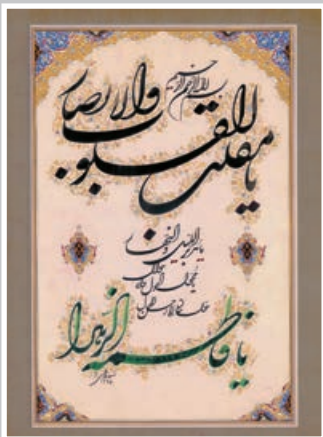 بسم الله الرحمن الرحیم
یا مقلب القلوب والابصار
یا مدبر اللیل و النهار
یا محول الحول والاحوال
حول حالنا الی احسن الحال
یا فاطمه الزهرا